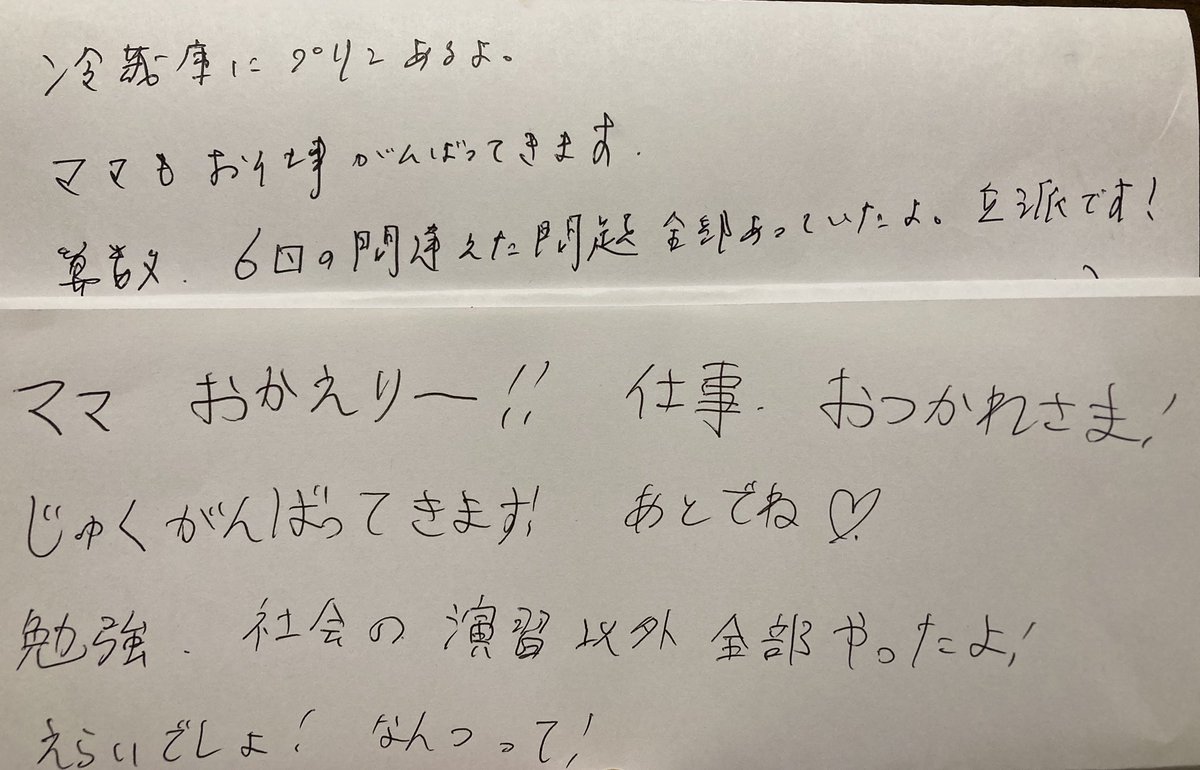 冷蔵庫にプリンあるよ。
ママもお仕事がんばってきます.
算数. 6回の間違えた問題全部あっていたよ。立派です!
ママ おかえりー!! 仕事. おつかれさま!
じゅくがんばってきます! あとでね♡
勉強. 社会の演習以外全部やったよ!
えらいでしょ! なんつって!